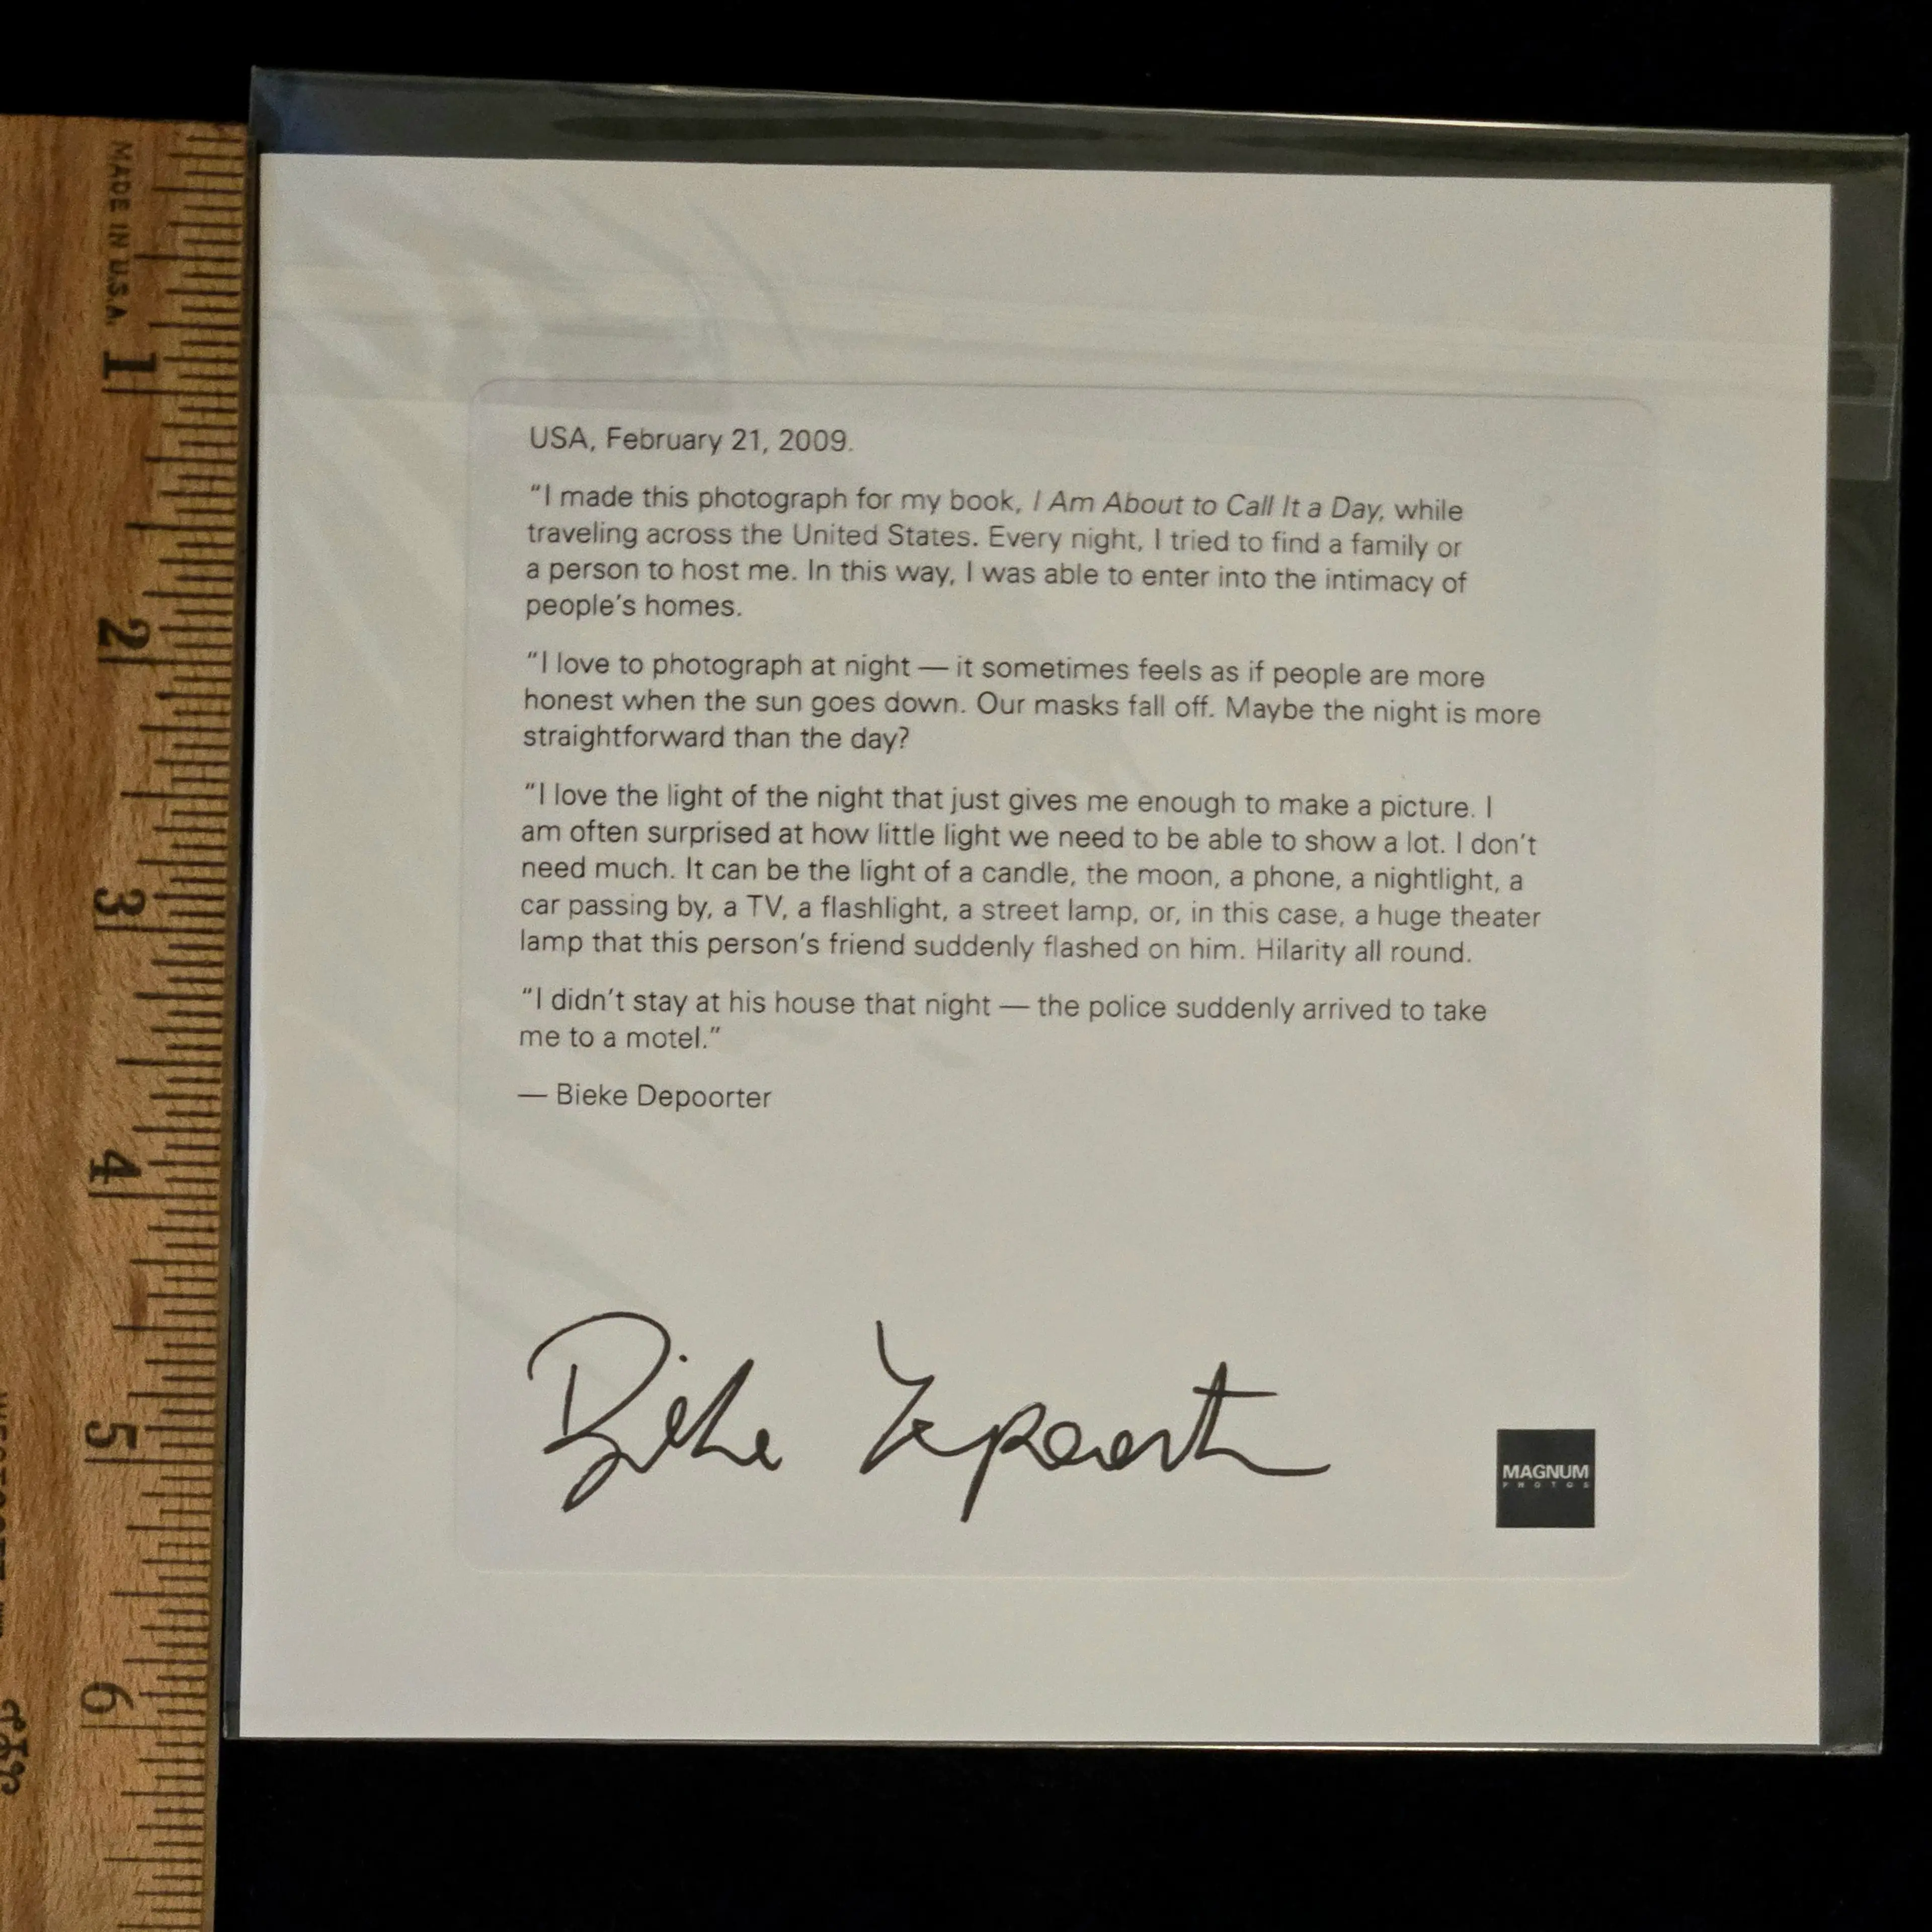 MADE IN U.S.A.
1
2
3
4
5
6
USA, February 21, 2009.
“I made this photograph for my book, I Am About to Call It a Day, while
traveling across the United States. Every night, I tried to find a family or
a person to host me. In this way, I was able to enter into the intimacy of
people’s homes.
“I love to photograph at night — it sometimes feels as if people are more
honest when the sun goes down. Our masks fall off. Maybe the night is more
straightforward than the day?
“I love the light of the night that just gives me enough to make a picture. I
am often surprised at how little light we need to be able to show a lot. I don’t
need much. It can be the light of a candle, the moon, a phone, a nightlight, a
car passing by, a TV, a flashlight, a street lamp, or, in this case, a huge theater
lamp that this person’s friend suddenly flashed on him. Hilarity all round.
“I didn’t stay at his house that night — the police suddenly arrived to take
me to a motel.”
— Bieke Depoorter
Bieke Depoorter
MAGNUM
PHOTOS